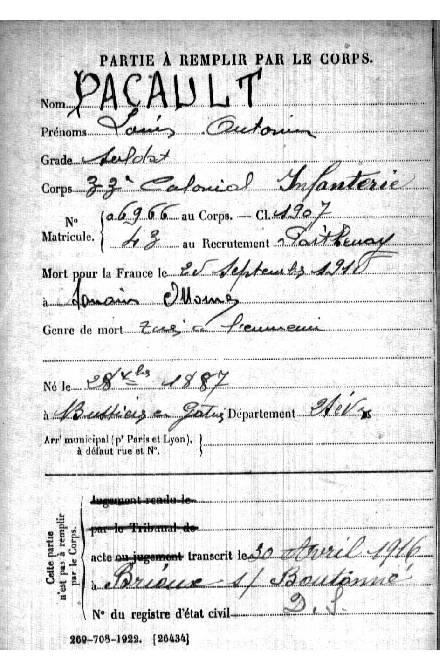 PARTIE À REMPLIR PAR LE CORPS.
Nom PACAULT
Prénoms Louis Antonin
Grade soldat
Corps 33e Colonial Infanterie
N° Matricule. { 06966 au Corps. — Cl. 1907
43 au Recrutement Parthenay
Mort pour la France le 25 Septembre 1915
à (Marne)
Genre de mort tué à l'ennemi
Né le 28 Xbre 1887
à Département 2 Sèv
Arrt municipal (pr Paris et Lyon), à défaut rue et N°. }
Cette partie n'est pas à remplir par le Corps.
Jugement rendu le
par le Tribunal de
acte ou jugement transcrit le 30 Avril 1916
à Brioux s/ Boutonne
D. S.
N° du registre d'état civil
269-708-1922. [26434]